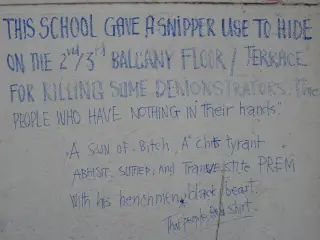 THIS SCHOOL GAVE A SNIPPER USE TO HIDE
ON THE 2nd/3rd BALCANY FLOOR / TERRACE
FOR KILLING SOME DEMONSTRATORS. The
PEOPLE WHO HAVE NOTHING IN Their hands"
A SUN of Bitch, A" tyrant
ABHISIT, SUTHEP, And Tranvestite PREM
With his henchmen, black heart.
Thai people